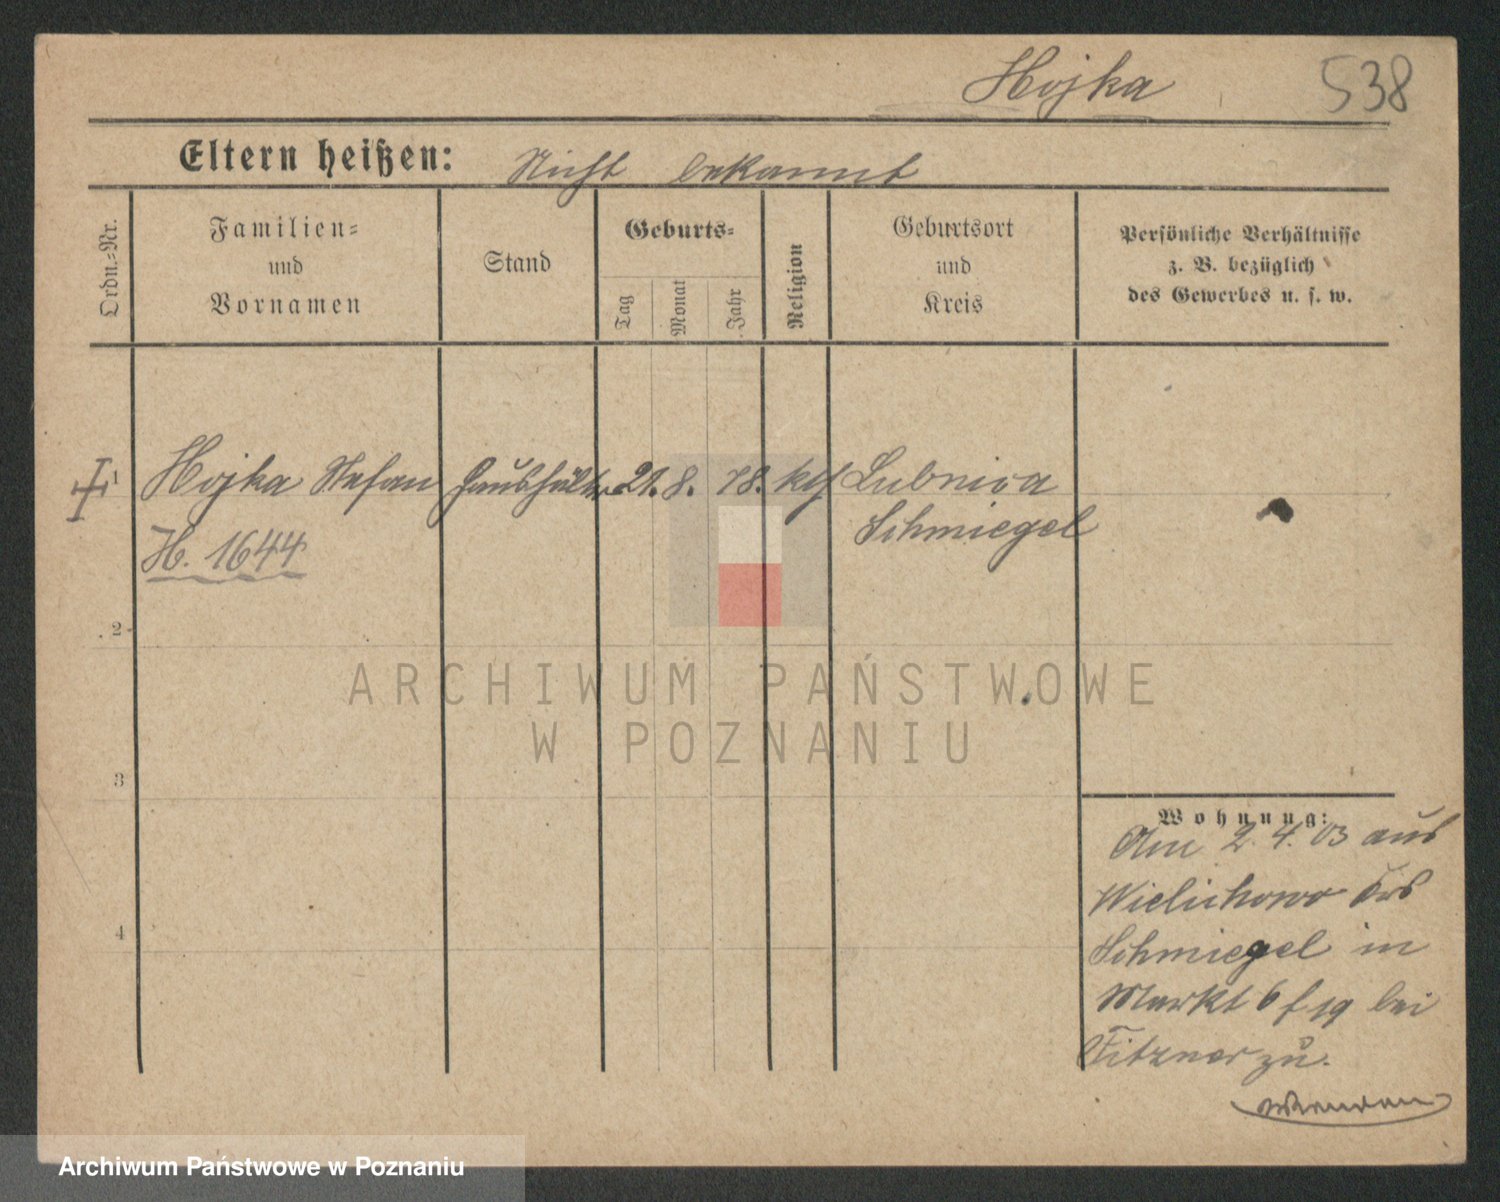 Hojka 538
Eltern heißen: Nicht bekannt
Ordn.-Nr.
Familien-
und
Vornamen
Stand
Geburts-
Tag
Monat
Jahr
Religion
Geburtsort
und
Kreis
Persönliche Verhältnisse
z. B. bezüglich
des Gewerbes u. s. w.
1 Hojka Stefan Haushälter 21. 8. 78. kth Lubnica
Schmiegel
H. 1644
2
3
4
Wohnung:
Am 2. 4. 03 aus
Wielichowo Krs
Schmiegel in
Markt 6 bei
Fitzner zu.
ARCHIWUM PAŃSTWOWE
W POZNANIU
Archiwum Państwowe w Poznaniu